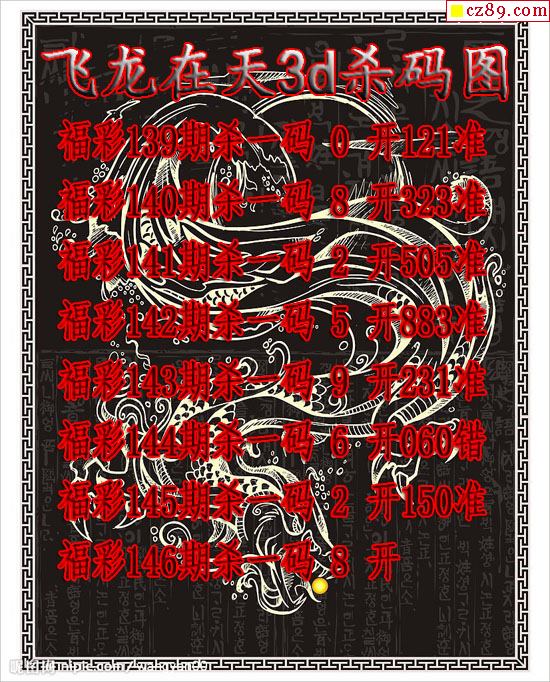 cz89.com
飞龙在天3d杀码图
福彩139期杀一码 0 开121准
福彩140期杀一码 8 开323准
福彩141期杀一码 2 开505准
福彩142期杀一码 5 开883准
福彩143期杀一码 9 开231准
福彩144期杀一码 6 开060错
福彩145期杀一码 2 开150准
福彩146期杀一码 8 开